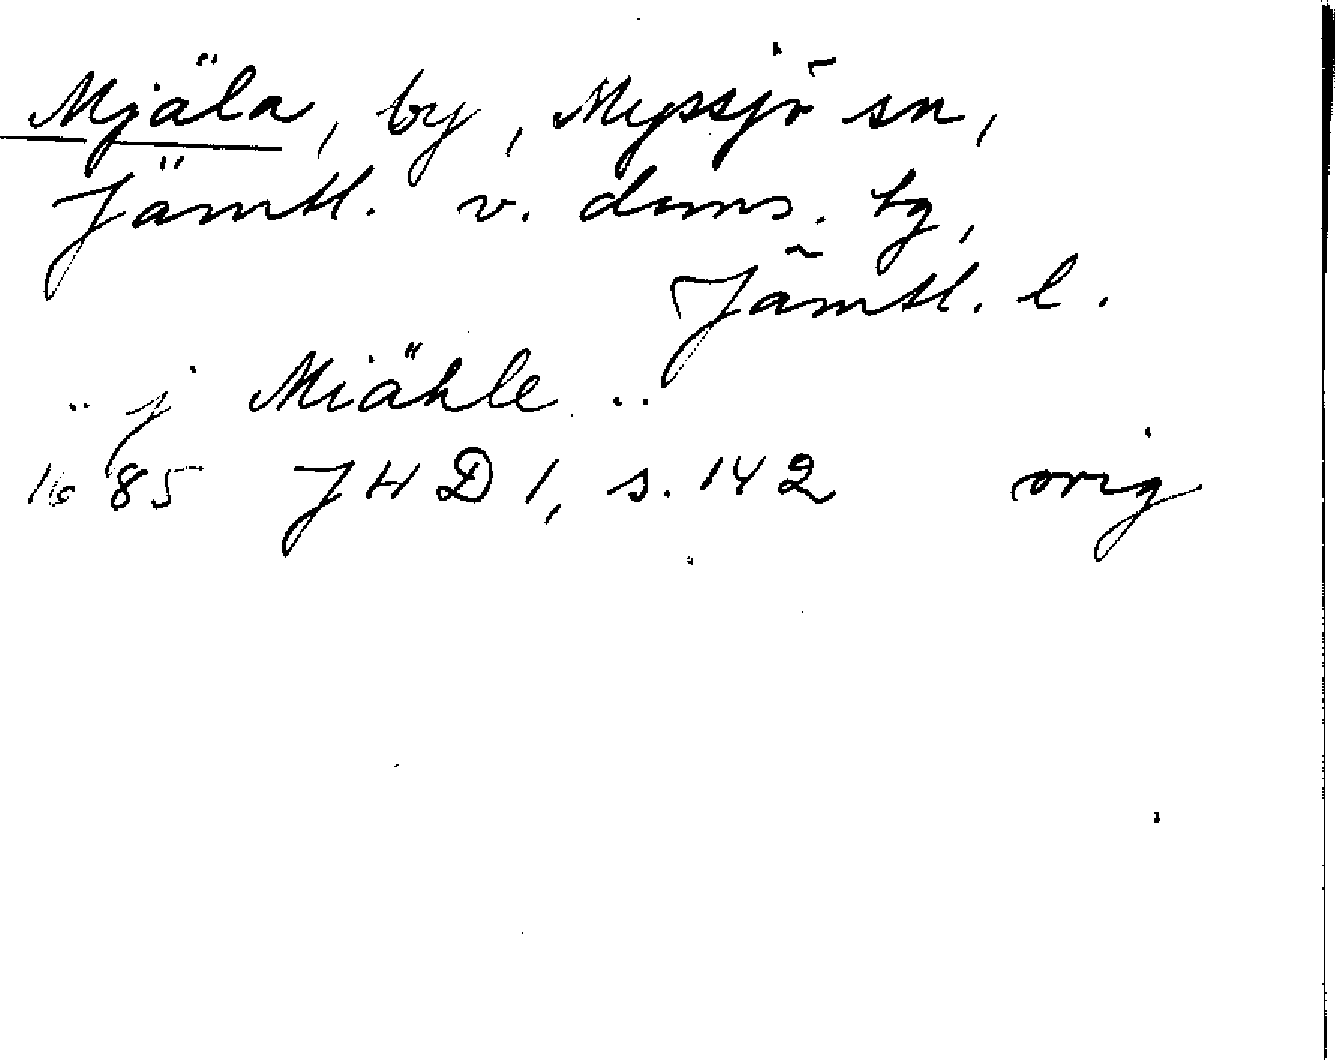 Mjäla, by, Myssjö sn,
Jämtl. v. doms. tg,
Jämtl. l.
.. j Miähle ..
1685 JHD 1, s. 142 orig